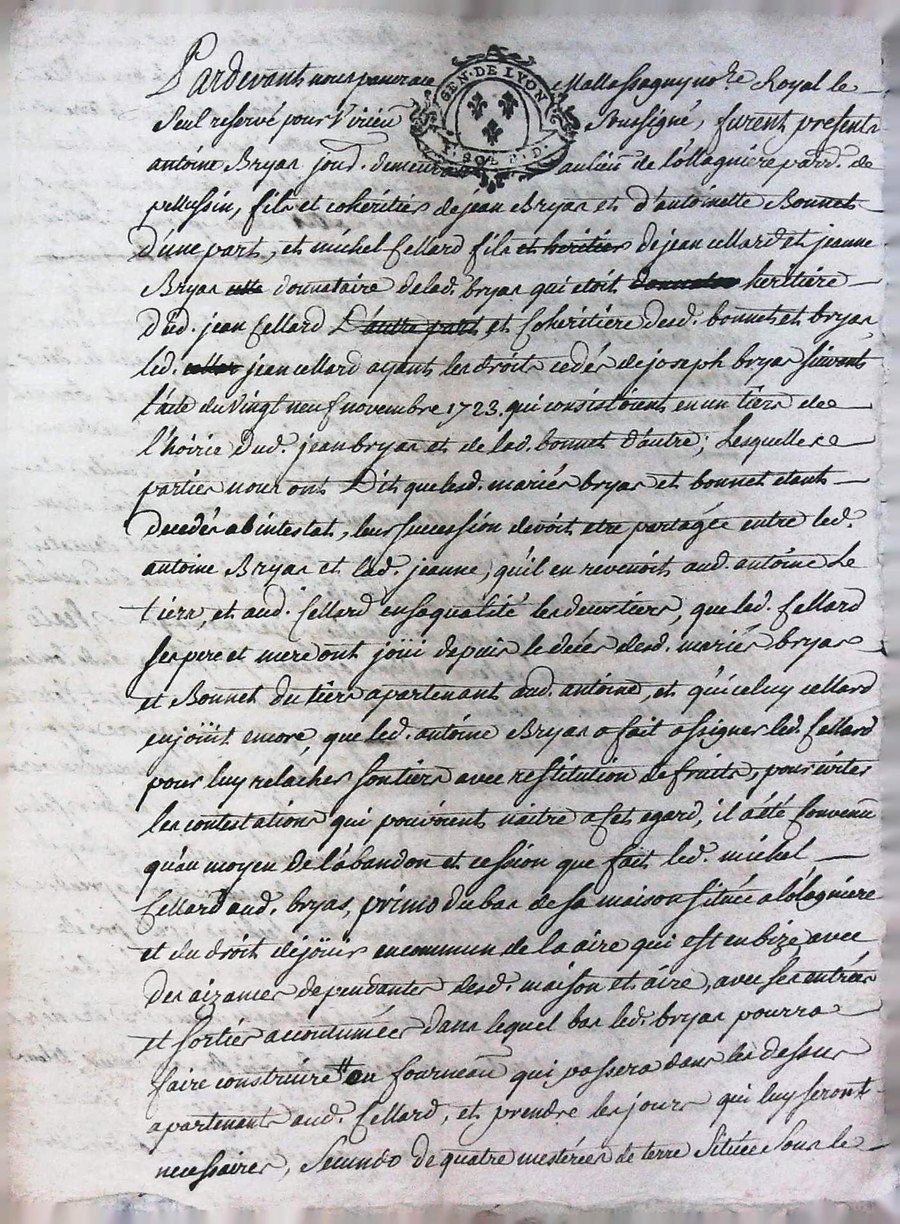 GEN. DE LYON
SOLS. D.
Pardevant nous pancrace Mallassagny no.re Royal le
Seul reservé pour Virieu Soussigné, furent presents
antoine Bryas jour.d demeurant au lieu de lollagniere parr.d de
pellussin, fils et coheritier de jean Bryas et d'antoinette Bonnet
d'une part, et michel Cellard fils et heritier de jean cellard et jeanne
Bryas donnataire de lad. bryas qui etoit heritiere
dud. jean Cellard D'autre part, et Coheritiere desd. bonnet et bryas,
led. jean cellard ayant les droits cedés de joseph bryas suivant
l'acte du Vingt neuf novembre 1723. qui consistoient en un tiers de
l'hoirie dud. jean bryas et de lad. bonnet d'autre; Lesquelles
parties nous ont Dit que lesd. mariés bryas et bonnet etant
decedés ab intestat, leur succession devoit etre partagée entre led.
antoine Bryas et lad. jeanne, qu'il en revenoit aud. antoine Le
tiers, et aud. Cellard en sa qualité les deux tiers, que led. Cellard
ses pere et mere ont joüi depuis le decés desd. mariés bryas
et Bonnet du tiers apartenant aud. antoine, et qu'iceluy cellard
en joüit encore, que led. antoine Bryas a fait assigner led. Cellard
pour luy relacher son tiers avec restitution de fruits, pour eviter
les contestations qui pouvoient naitre a cet egard, il a été Convenu
qu'au moyen de l'abandon et cession que fait led. michel
Cellard aud. bryas, primo du bas de sa maison située a lolagniere
et du droit de joüir en commun de la aire qui est en bize avec
des aizances dependantes desd. maison et aire, avec ses entrées
et sorties acoutumées dans lequel bas led. bryas pourra
faire construire un fourneau qui passera dans les dessus
apartenant aud. Cellard, et prendre les jours qui luy seront
necessaires, Secundo de quatre mesterées de terre Située Sous le